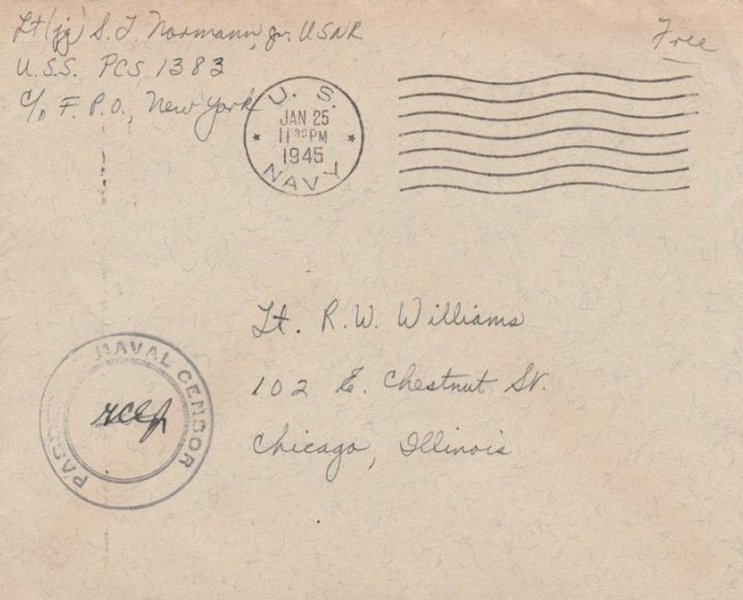 Lt (jg) S. T. Normann, Jr. USNR
Free
U.S.S. PCS 1383
c/o F. P.O., New York
U. S.
JAN 25
11 30 PM
1945
NAVY
Lt. R.W. Williams
102 E. Chestnut St.
Chicago, Illinois
NAVAL CENSOR